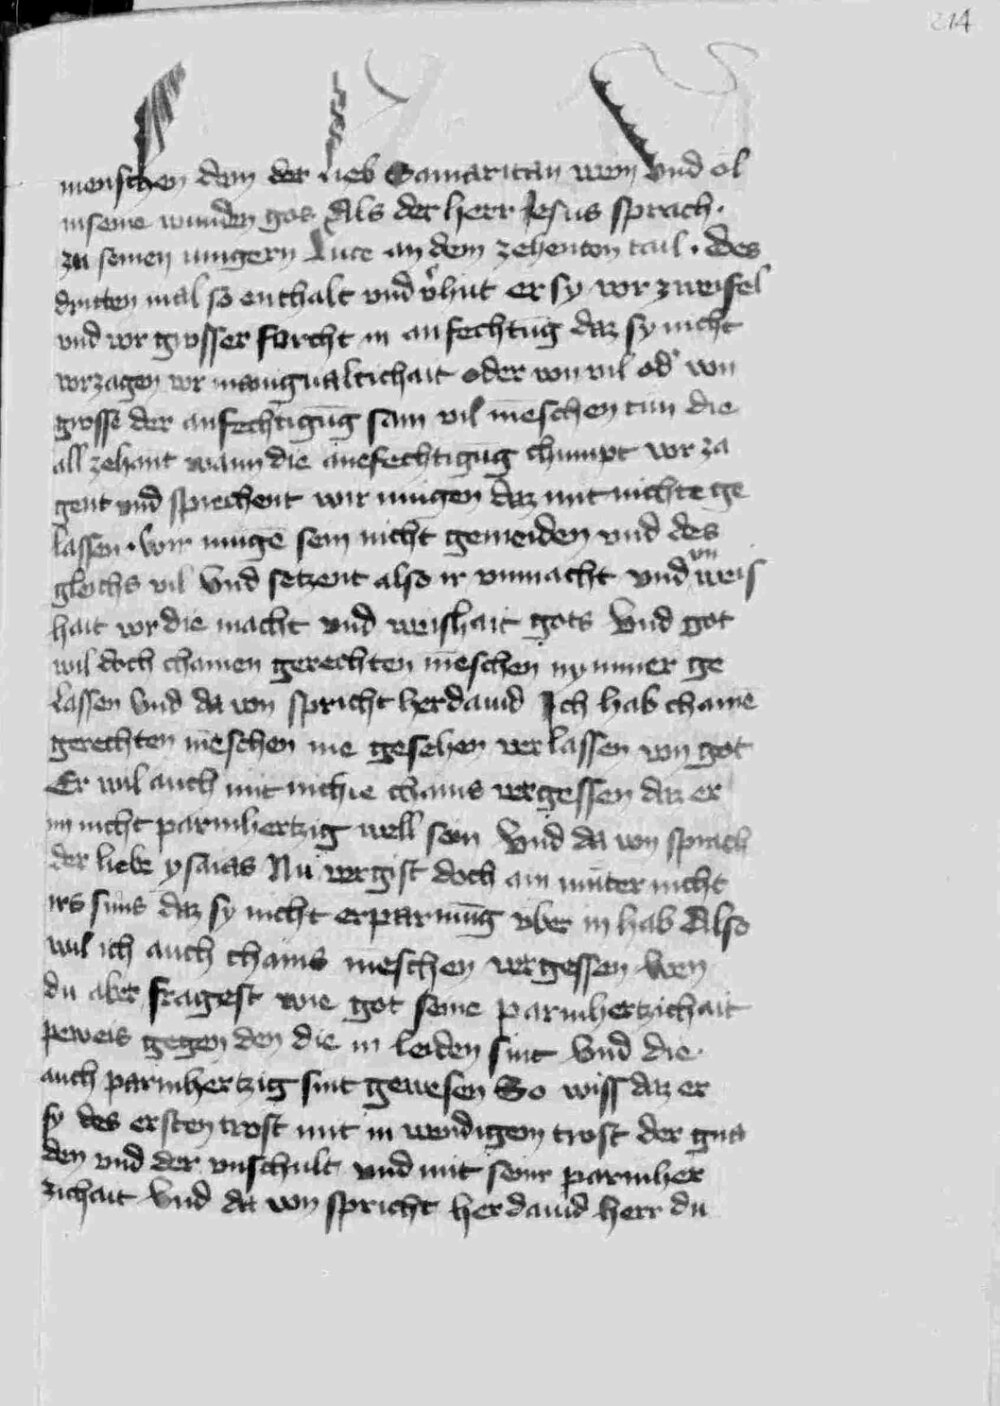 214
menschen dem der lieb Samaritan wein Und öl
in seine wunden gos Als der herr Jesus sprach ·
zu seinen iungern Luce an dem zehenten tail · Des
dritten mal so enthalt vnd v̾hut er sy vor zweifel
vnd vor grosser forcht in anfechtūg daz sy nicht
vorzagen vor manigualtichait oder von vil od̾ von
grosse der anfechtigūg sam vil mēschen tun die
all zehant wann die anefechtigūg chumpt vor za
gent vnd sprechent wir mugen daz mit nichte ge
lassen · wir mugē sein nicht gemeiden vnd des
gleichs vil Vnd setzent also ir vnmacht vnd vn weis
hait vor die macht vnd weishait gots Vnd got
wil doch chainen gerechten mēschen nymmer ge
lassen Vnd da von spricht her dauid Ich hab chainē
gerechten mēschen nie gesehen verlassen von got
Er wil auch mit nichte chains vergessen daz er
im nicht parmhertzig well sein Vnd da von sprach
der liebe ysaias Nu vergist doch ain muter nicht
irs suns daz sy nicht erparmūg vber in hab Also
wil ich auch chains meschen vergessen Wen
du aber fragest wie got seine parmhertzichait
peweis gegen den die in leiden sint Vnd die ·
auch parmhertzig sint gewesen So wiss daz er
sy des ersten trost mit in wendigem trost der gna
den vnd der vnschult vnd mit seinr parmher
zichait Vnd da von spricht her dauid herr du